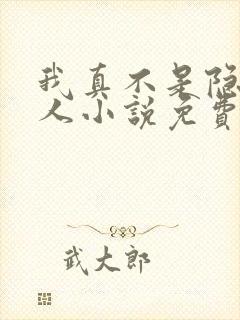 我真不是隐
人小説免費
武大郎